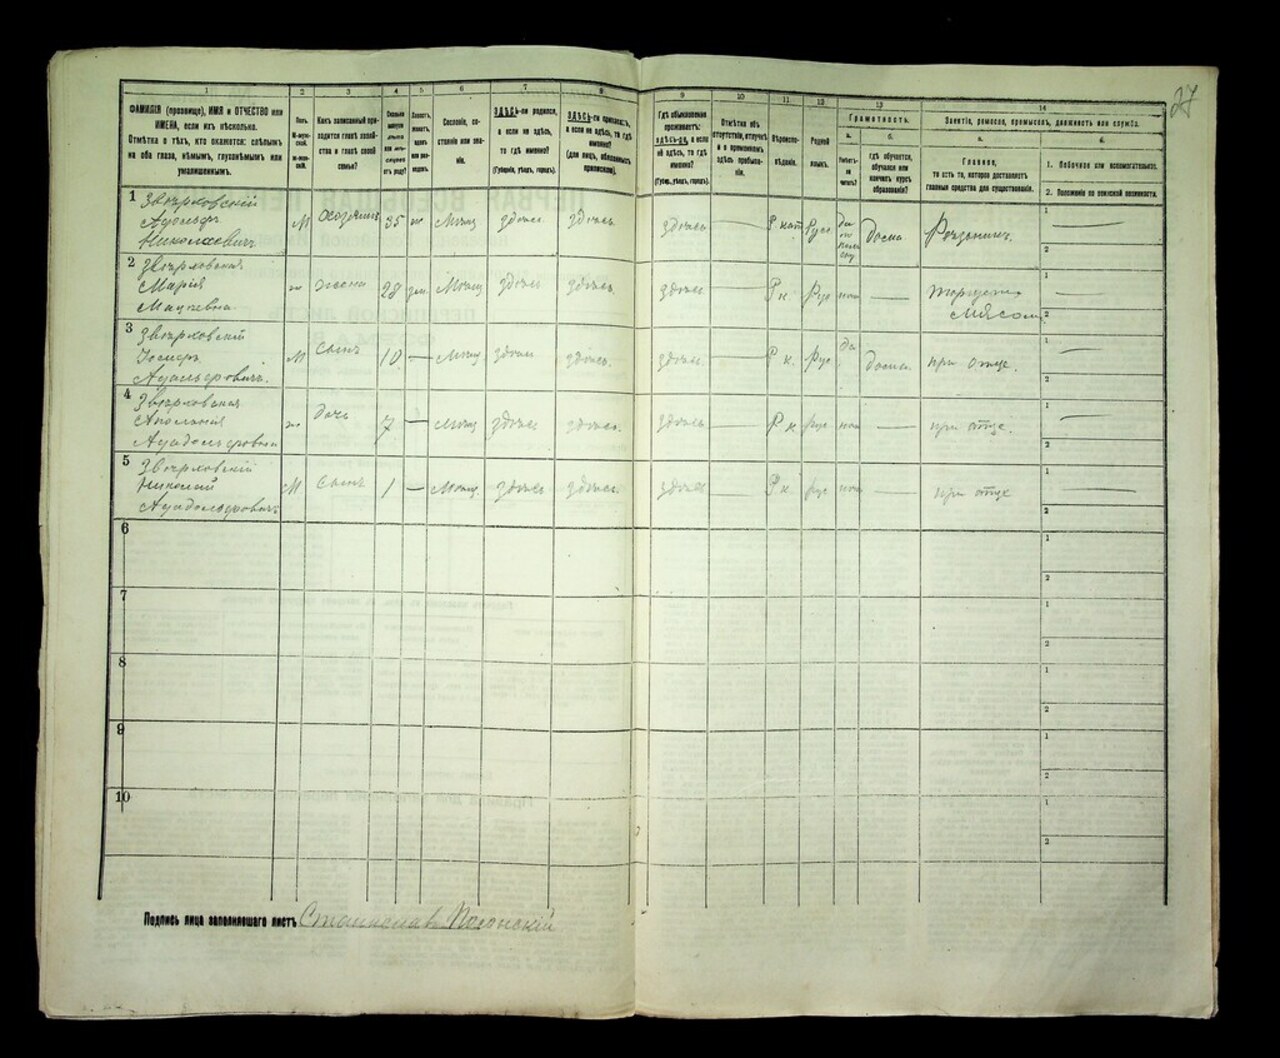 27
1 2 3 4 5 6 7 8 9 10 11 12 13 14
ФАМИЛІЯ (прозвище), ИМЯ и ОТЧЕСТВО или
ИМЕНА, если ихъ нѣсколько.
Отмѣтка о тѣхъ, кто окажется: слѣпымъ
на оба глаза, нѣмымъ, глухонѣмымъ или
умалишеннымъ.
Полъ.
М-муж-
ской.
Ж-жен-
скій.
Какъ записанный при-
ходится главѣ хозяй-
ства и главѣ своей
семьи?
Сословіе, со-
стояніе или зва-
ніе.
ЗДѢСЬ-ли родился,
а если не здѣсь,
то гдѣ именно?
(Губернія, уѣздъ, городъ).
ЗДѢСЬ-ли приписанъ,
а если не здѣсь, то гдѣ
именно?
(для лицъ, обязанныхъ
припискою).
Гдѣ обыкновенно
проживаетъ:
здѣсь-ли, а если
не здѣсь, то гдѣ
именно?
(Губер., уѣздъ, городъ).
Отмѣтка объ
отсутствіи, отлучкѣ
и о временномъ
здѣсь пребыва-
ніи.
Вѣроиспо-
вѣданіе.
Родной
языкъ.
Грамотность.
а. б.
Умѣетъ-
ли
читать?
гдѣ обучается,
обучался или
кончилъ курсъ
образованія?
Занятіе, ремесло, промыселъ, должность или служба.
а. б.
Главное,
то есть то, которое доставляетъ
главныя средства для существованія.
1. Побочное или вспомогательное.
2. Положеніе по воинской повинности.
1 Звѣрховскій
Адольфъ
Николаевичъ
М хозяинъ 35 ж Мѣщ здѣсь здѣсь здѣсь — Р кат Рус да дома Рѣзникъ. 1 —
2
2 Звѣрховская
Марія
ж жена 28 зам. Мѣщ здѣсь здѣсь здѣсь — Р к. Рус нѣт — торгуетъ мясомъ 1 —
2
3 Звѣрховскій
Іосифъ
Адольфовичъ.
М сынъ 10 — Мѣщ здѣсь здѣсь. здѣсь. — Р к. Рус да дома. при отце. 1 —
2
4 Звѣрховская
Аполонія
Адольфовна
ж дочь 7 — Мѣщ здѣсь здѣсь. здѣсь — Р к рус нѣт — при отце. 1 —
2
5 Звѣрховскій
Николай
Адольфовичъ
М сынъ 1 — Мѣщ. здѣсь здѣсь. здѣсь — Р к. рус нѣт — при отце 1 —
2
6 1
2
7 1
2
8 1
2
9 1
2
10 1
2
Подпись лица заполнявшаго листъ Станиславъ